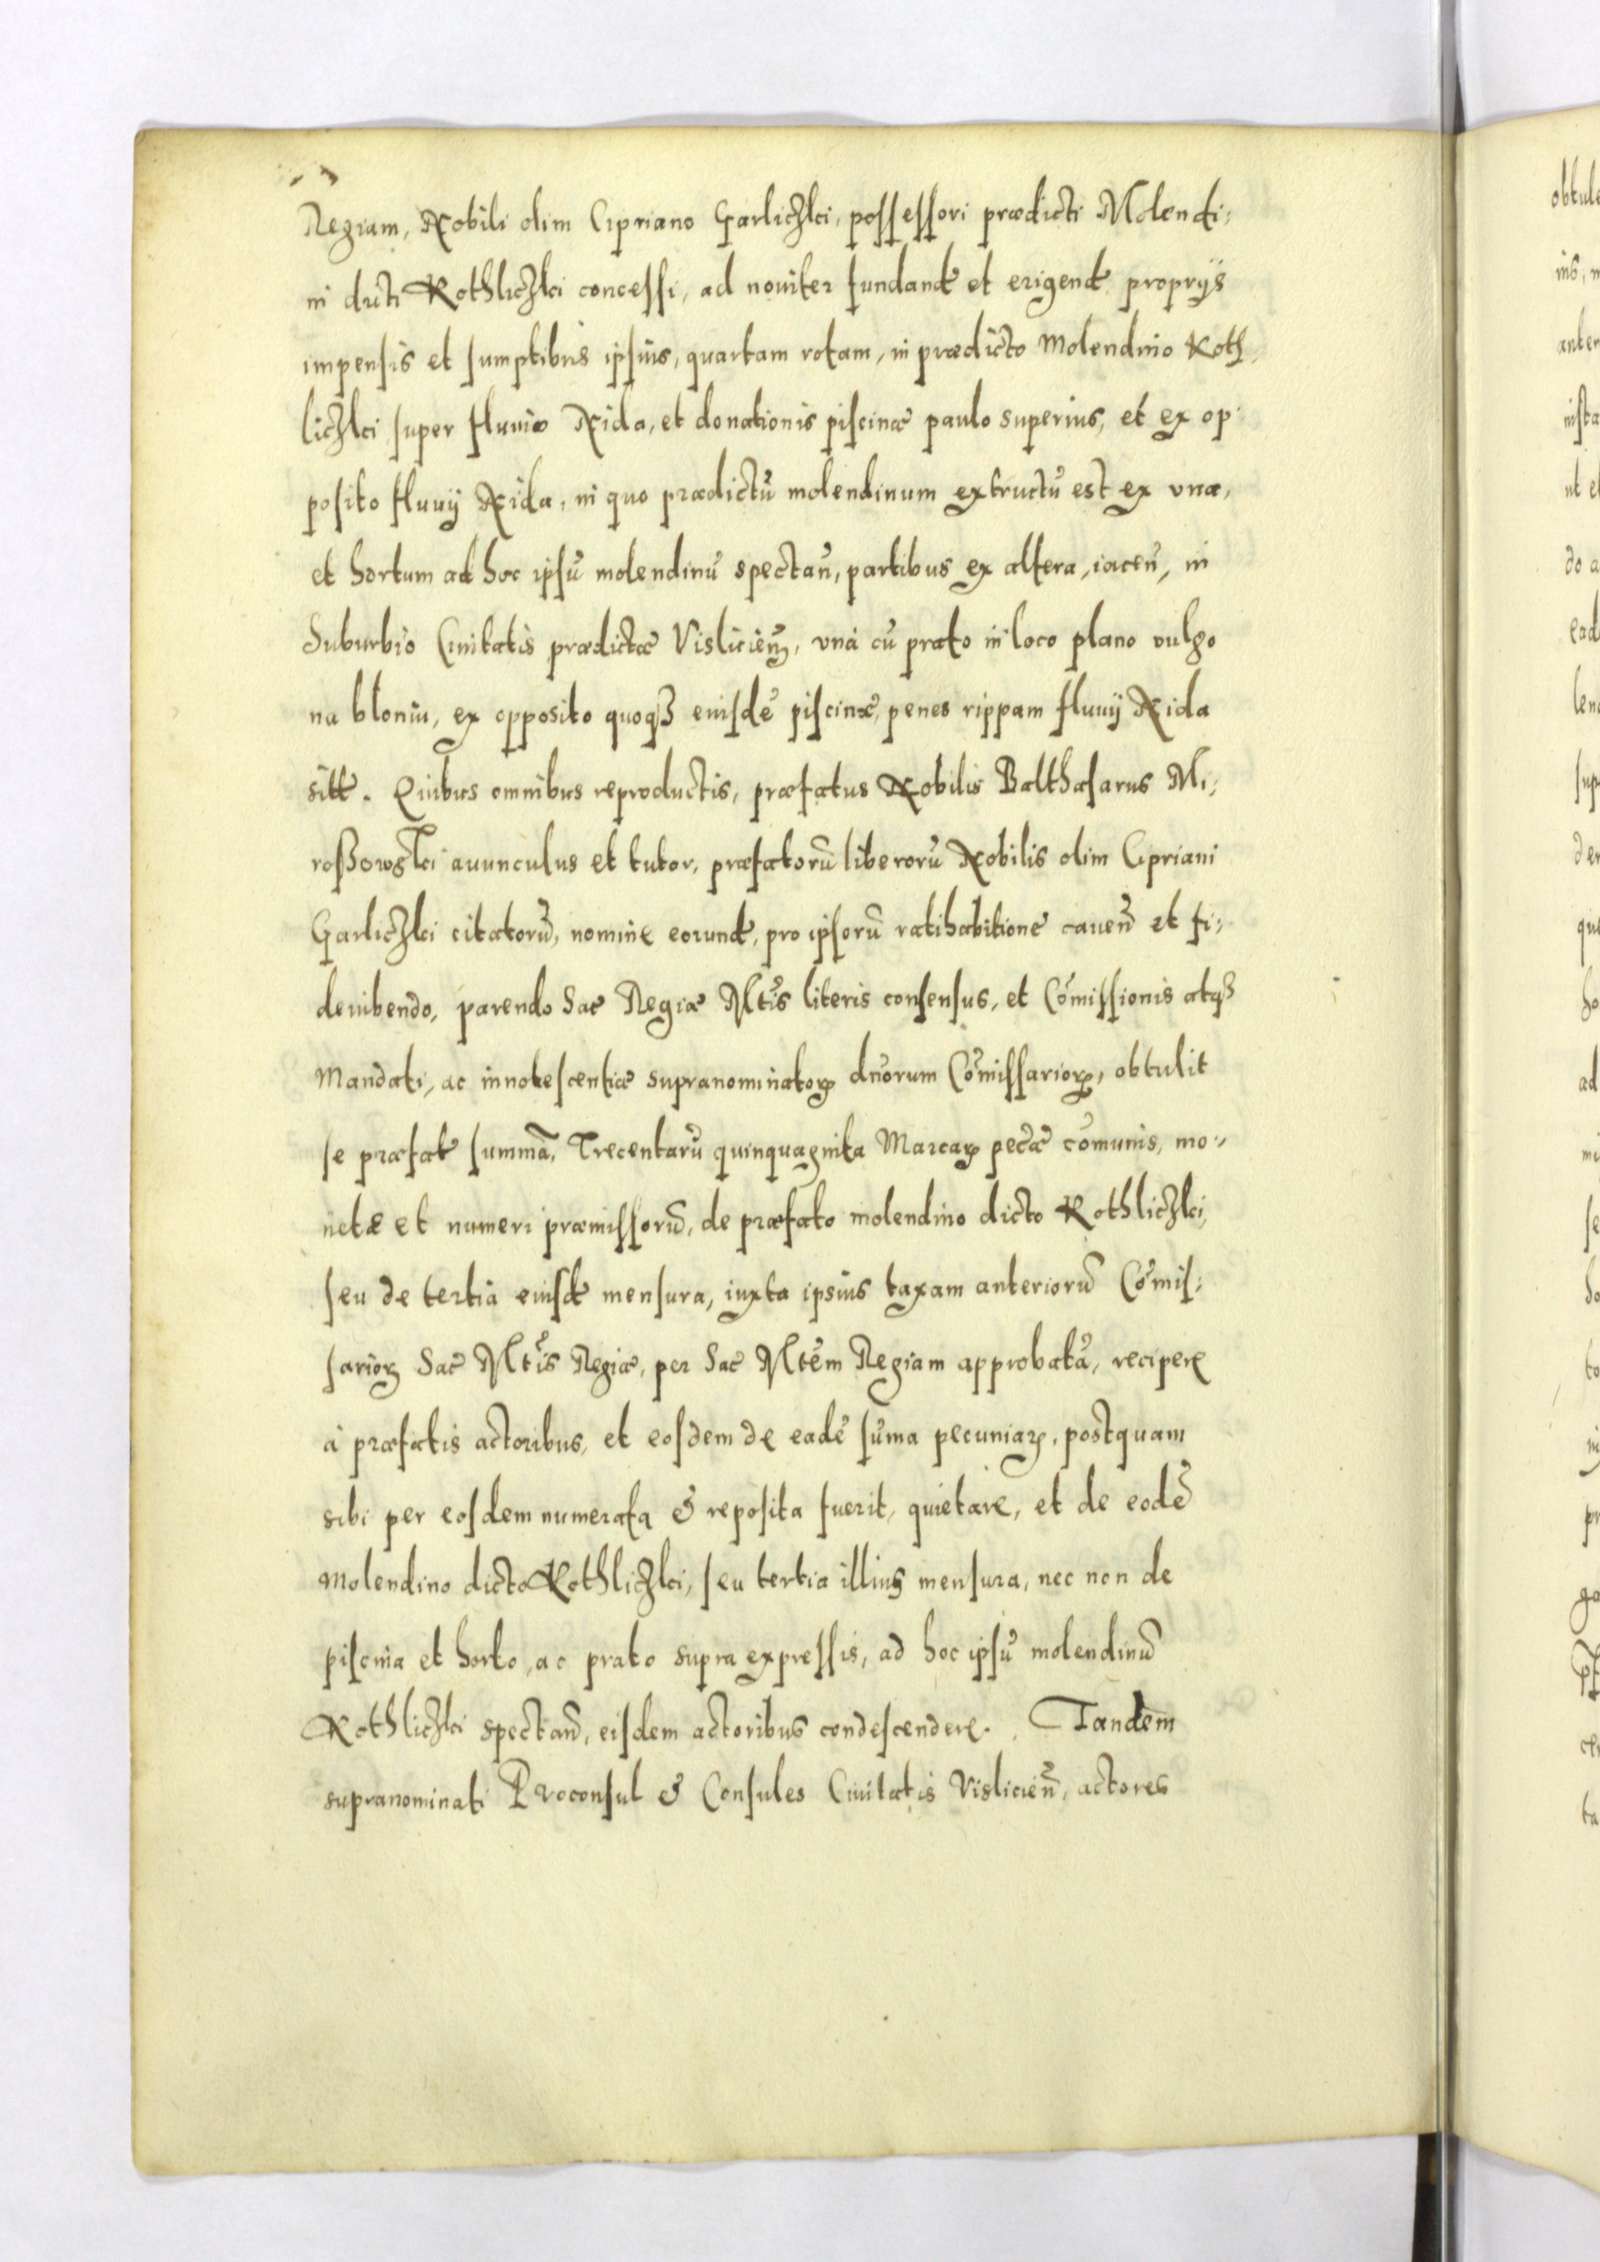 Regiam, Nobili olim Cipriano Garliczki, possessori prædicti Molendi:
ni dicti Kothliczki concessi, ad noviter fundand et erigend proprÿs
impensis et sumptibus ipsius, quartam rotam, in prædicto Molendino Koth
liczki super fluvio Nida, et donationis piscinæ paulo superius, et ex op
posito fluvÿ Nida, in quo prædictũ molendinum extructũ est ex una,
et hortum ad hoc ipsũ molendinũ spectañ, partibus ex altera, iaceñ, in
Suburbio Civitatis prædictæ Vislicieñ, vnà cũ prato in loco plano vulgo
na bloniu, ex opposito quoqȝ eiusdẽ piscinæ, penes rippam fluvÿ Nida
sitt. Quibus omnibus reproductis, præfatus Nobilis Balthasarus Mi:
roßowski auunculus et tutor, præfatorũ liberorũ Nobilis olim Cipriani
Garliczki citatorũ, nomine eorund, pro ipsorũ ratihabitione caueñ et fi:
deiubendo, parendo Sac Regiæ Mttis literis consensus, et Cõmissionis atqȝ
Mandati, ac innotescentiæ supranominatoꝝ dnorum Cõmissarioꝝ, obtulit
se præfat summã, Trecentarũ quinquaginta Marcaꝝ pecæ cõmunis, mo:
netæ et numeri præmissorũ, de præfato molendino dicto Kothliczki,
seu de tertia eiusd mensura, iuxta ipsius taxam anteriorũ Cõmis:
sarioꝝ Sac Mttis Regiæ, per Sac Mttem Regiam approbatã, recipere
à præfatis actoribus, et eosdem de eadẽ sũma pecuniaꝝ, postquam
sibi per eosdem numerata & reposita fuerit, quietare, et de eodẽ
Molendino dicto Kothliczki, seu tertia illius mensura, nec non de
piscina et horto, ac prato supra expressis, ad hoc ipsũ molendinũ
Kothliczki spectañ, eisdem actoribus condescendere. Tandem
supranominati Proconsul & Consules Civitatis Vislicieñ, actores